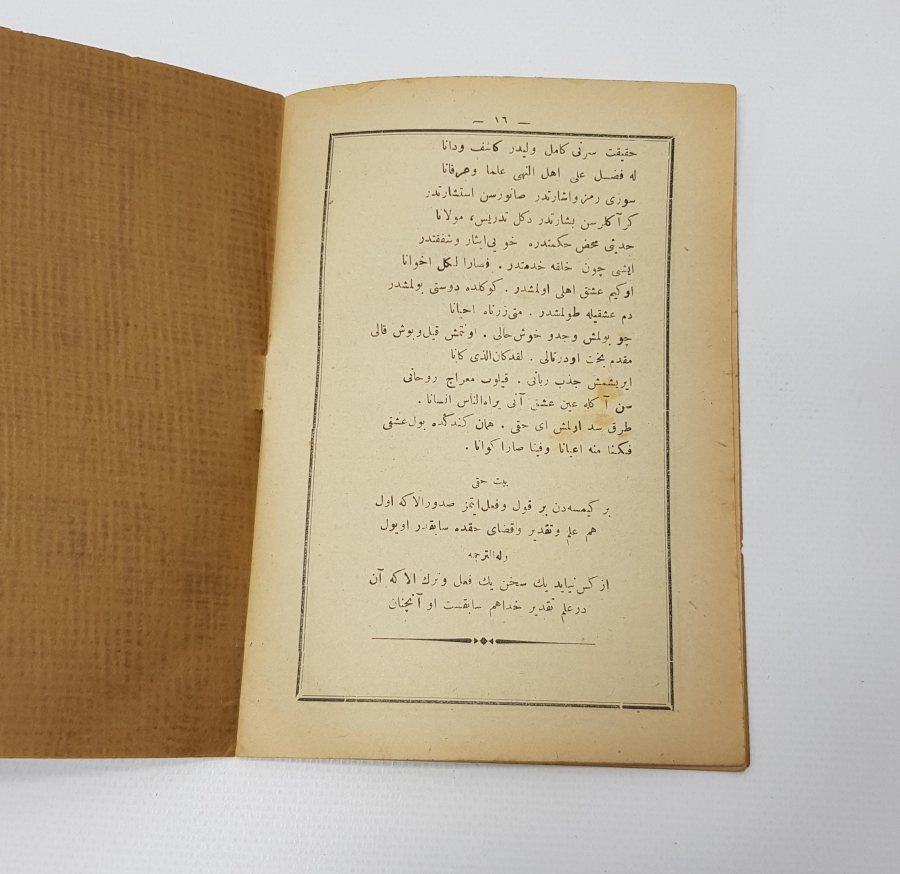 — ١٦ —
حقيقت سرنى كامل وليدر كاشف ودانا
له فضل على اهل النهى علما وعرفانا
سوزى رمز واشارتدر صانورسن استشارتدر
كر آكلرسن بشارتدر دكل تدريس، مولانا
حديثى محض حكمتدره خويى ايثار وشفقتدر
ايشى چون خلقه خدمتدر . فصارا لكل اخوانا
اوكيم عشق اهلى اولمشدر . كوكلده دوستى بولمشدر
دم عشقيله طولمشدر . متى زرناه احيانا
چو بولمش وجدو خوش حالى . اونتمش قيل وبوش قالى
مقدم بخت اودرتالى . لقدكان الذى كانا
ايريشمش جذب ربانى . قيلوب معراج روحانى
سن آكله عين عشق آنى يراه الناس انسانا .
طرق سد اولمش اى حقى . همان كندكده بول عشقى
فكنا منه اعيانا وفينا صار اكوانا .
بيت حقى
بر كيمسه دن بر قول وفعل ايتمز صدور الا كه اول
هم علم وتقدير وقضاى حقده سابقدر اويول
وله الترجمه
از كس نيايد يك سخن يك فعل وترك الا كه آن
در علم تقدير خداهم سابقست او آنچنان